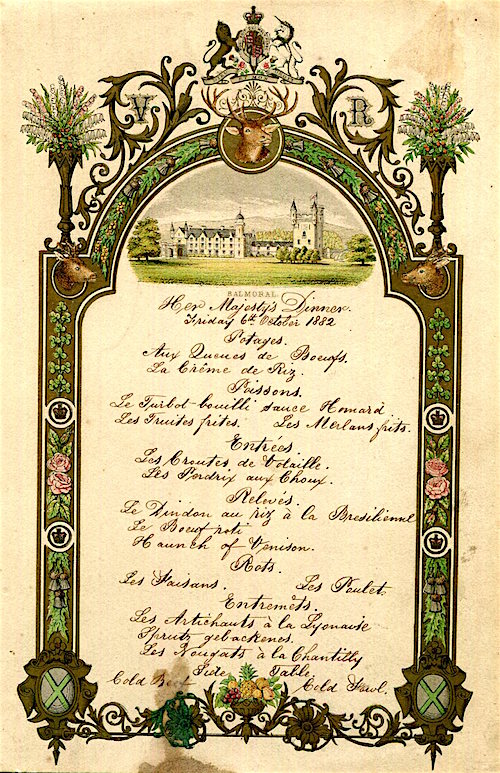 V R
BALMORAL
Her Majesty's Dinner.
Friday 6th October 1882
Potages.
Aux Queues de Boeufs.
La Crême de Riz.
Poissons.
Le Turbot bouilli sauce Homard
Les Truites frites. Les Merlans frits.
Entrées
Les Croutes de Volaille.
Les Perdrix aux Choux.
Relevés.
Le Dindon au riz à la Bresilienne
Le Boeuf roti
Haunch of Venison.
Rots.
Les Faisans. Les Poulet
Entremêts.
Les Artichauts à la Lyonaise
Spritz gebackenes.
Les Nougats à la Chantilly
Side Table
Cold Beef Cold Fowl.